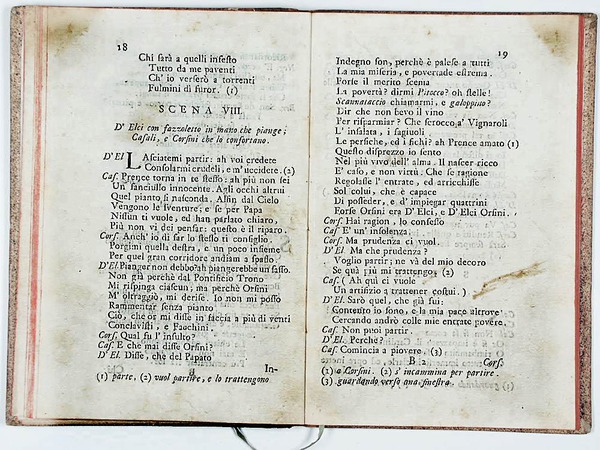 18
Chi sarà a quelli infesto
Tutto da me paventi
Ch' io verserò a torrenti
Fulmini di furor. (1)
SCENA VIII.
D' Elci con fazzoletto in mano che piange;
Casali, e Corsini che lo confortano.
D' El LAsciatemi partir: ah voi credere
Consolarmi crudeli, e m' uccidete. (2)
Cas. Prence torna in te stesso: ah più non sei
Un fanciullo innocente. Agli occhi altrui
Quel pianto si nasconda. Alfin dal Cielo
Vengono le sventure; e se per Papa
Nissun ti vuole, ed han parlato chiaro,
Più non vi dei pensar: questo è il riparo.
Cors. Anch' io di far lo stesso ti consiglio.
Porgimi quella destra, e un poco insieme
Per quel gran corridore andiam a spasso.
D' El. Pianger non debbo? ah piangerebbe un sasso.
Non già perchè dal Pontificio Trono
Mi rispinga ciascun; ma perchè Orsini
M' oltraggiò, mi derise. Io non mi posso
Rammentar senza pianto
Ciò, che or mi disse in faccia a più di venti
Conclavisti, e Facchini.
Cors. Qual fu l' insulto?
Cas. E che mai disse Orsini?
D' El. Disse, che del Papato
In-
(1) parte. (2) vuol partire, e lo trattengono
19
Indegno son, perchè è palese a tutti
La mia miseria, e povertade estrema.
Forse il merito scema
La povertà? dirmi Pitocco? oh stelle!
Scannataccio chiamarmi, e galoppino?
Dir che non bevo il vino
Per risparmiar? Che scrocco a' Vignaroli
L' insalata, i fagiuoli
Le persiche, ed i fichi? ah Prence amato (1)
Questo disprezzo io sento
Nel più vivo dell' alma. Il nascer ricco
E' caso, e non virtù. Che se ragione
Regolasse l' entrate, ed arricchisse
Sol colui, che è capace
Di posseder, e d' impiegar quattrini
Forse Orsini era D' Elci, e D' Elci Orsini.
Cors. Hai ragion, lo confesso
Cas E' un' insolenza.
Cors. Ma prudenza ci vuol.
D' El. Ma che prudenza?
Voglio partir; ne và del mio decoro
Se quà più mi trattengo. (2)
Cas. ( Ah quì ci vuole
Un artifizio a trattener costui. )
D' El. Sarò quel, che già fui:
Contento io sono, e la mia pace altrove
Cercando andrò colle mie entrate povere.
Cas. Non puoi partir.
D' El. Perchè?
Cas. Comincia a piovere. (3)
B 2 Cors.
(1) a Corsini. (2) s' incammina per partire.
(3) guardando verso una finestra.